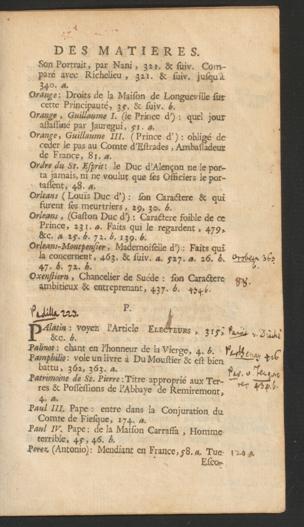 DES MATIERES.
Son Portrait, par Nani, 321. & suiv. Com-
paré avec Richelieu, 321. & suiv. jusqu'à
340. a.
Orange: Droits de la Maison de Longueville sur
cette Principauté, 35. & suiv. b.
Orange, Guillaume I. (le Prince d'): quel jour
assassiné par Jauregui, 51. a.
Orange, Guillaume III. (Prince d'): obligé de
ceder le pas au Comte d'Estrades, Ambassadeur
de France, 81. a.
Ordre du St. Esprit: le Duc d'Alençon ne le por-
ta jamais, ni ne voulut que ses Officiers le por-
tassent, 48. a.
Orleans (Louïs Duc d'): son Caractere & qui
furent ses meurtriers, 29, 30. b.
Orleans, (Gaston Duc d'): Caractere foible de ce
Prince, 231. a. Faits qui le regardent, 479,
&c. a 25. b. 72. b. 139. b.
Orleans-Montpensier, Mademoiselle d'): Faits qui
la concernent, 463. & suiv. a. 527. a. 26. b.
47. b. 72. b.
Oxenstiern, Chancelier de Suéde: son Caractere
ambitieux & entreprenant, 437. b.
P.
PAlatin: voyez l'Article ELECTEURS, 315,
&c. b.
Palinot: chant en l'honneur de la Vierge, 4. b.
Pamphilio: vole un livre à Du Moustier & est bien
battu, 362, 363. a.
Patrimoine de St. Pierre: Titre approprié aux Ter-
res & Possessions de l'Abbaye de Remiremont,
4. a.
Paul III. Pape: entre dans la Conjuration du
Comte de Fiesque, 174. a.
Paul IV. Pape: de la Maison Carraffa, Homme
terrible, 45, 46. b.
Perez (Antonio): Mendiant en France, 58. a. Tue 120 a
Esco-